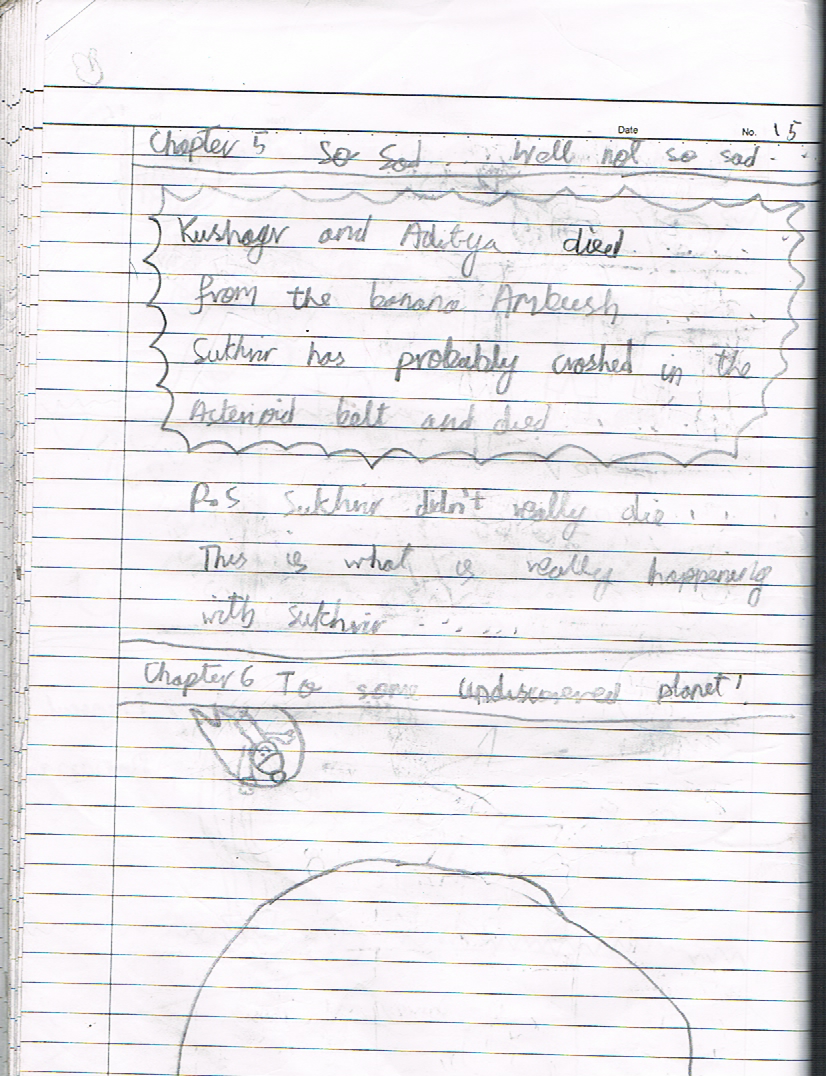 Date No. 15
Chapter 5 So Sad.... Well not so sad...
Kushagr and Aditya died......
from the banana Ambush....
Sukhvir has probably crashed in the
Asteriod belt and died......
P.S Sukhvir didn't really die....
This is what is really happening
with Sukhvir......
Chapter 6 To some undiscovered planet!